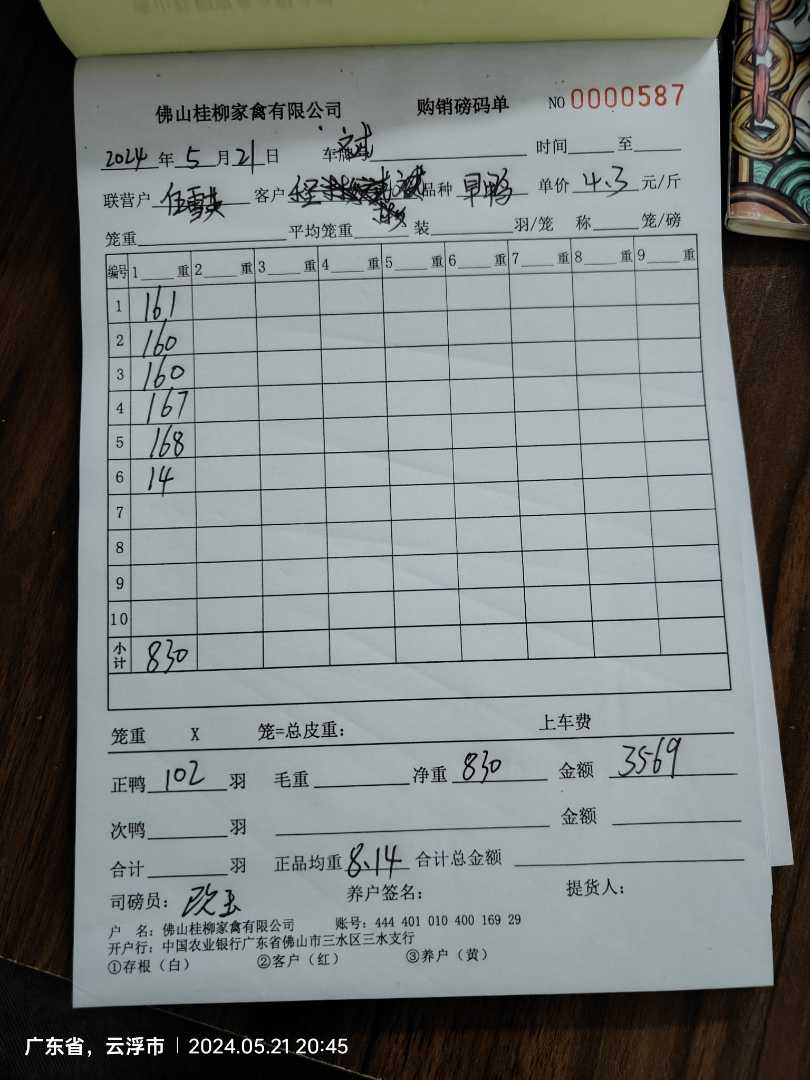 佛山桂柳家禽有限公司 购销磅码单 NO 0000587
2024年5月21日 车牌 时间 至
联营户 伍雪英 客户 品种 早鸭 单价 4.3 元/斤
笼重 平均笼重 装 羽/笼 称 笼/磅
编号 1 重 2 重 3 重 4 重 5 重 6 重 7 重 8 重 9 重
1 161
2 160
3 160
4 167
5 168
6 14
7
8
9
10
小计 830
笼重 X 笼=总皮重: 上车费
正鸭 102 羽 毛重 净重 830 金额 3569
次鸭 羽 金额
合计 羽 正品均重 8.14 合计总金额
司磅员: 养户签名: 提货人:
户 名: 佛山桂柳家禽有限公司 账号: 444 401 010 400 169 29
开户行: 中国农业银行广东省佛山市三水区三水支行
①存根(白) ②客户(红) ③养户(黄)
广东省, 云浮市 | 2024.05.21 20:45